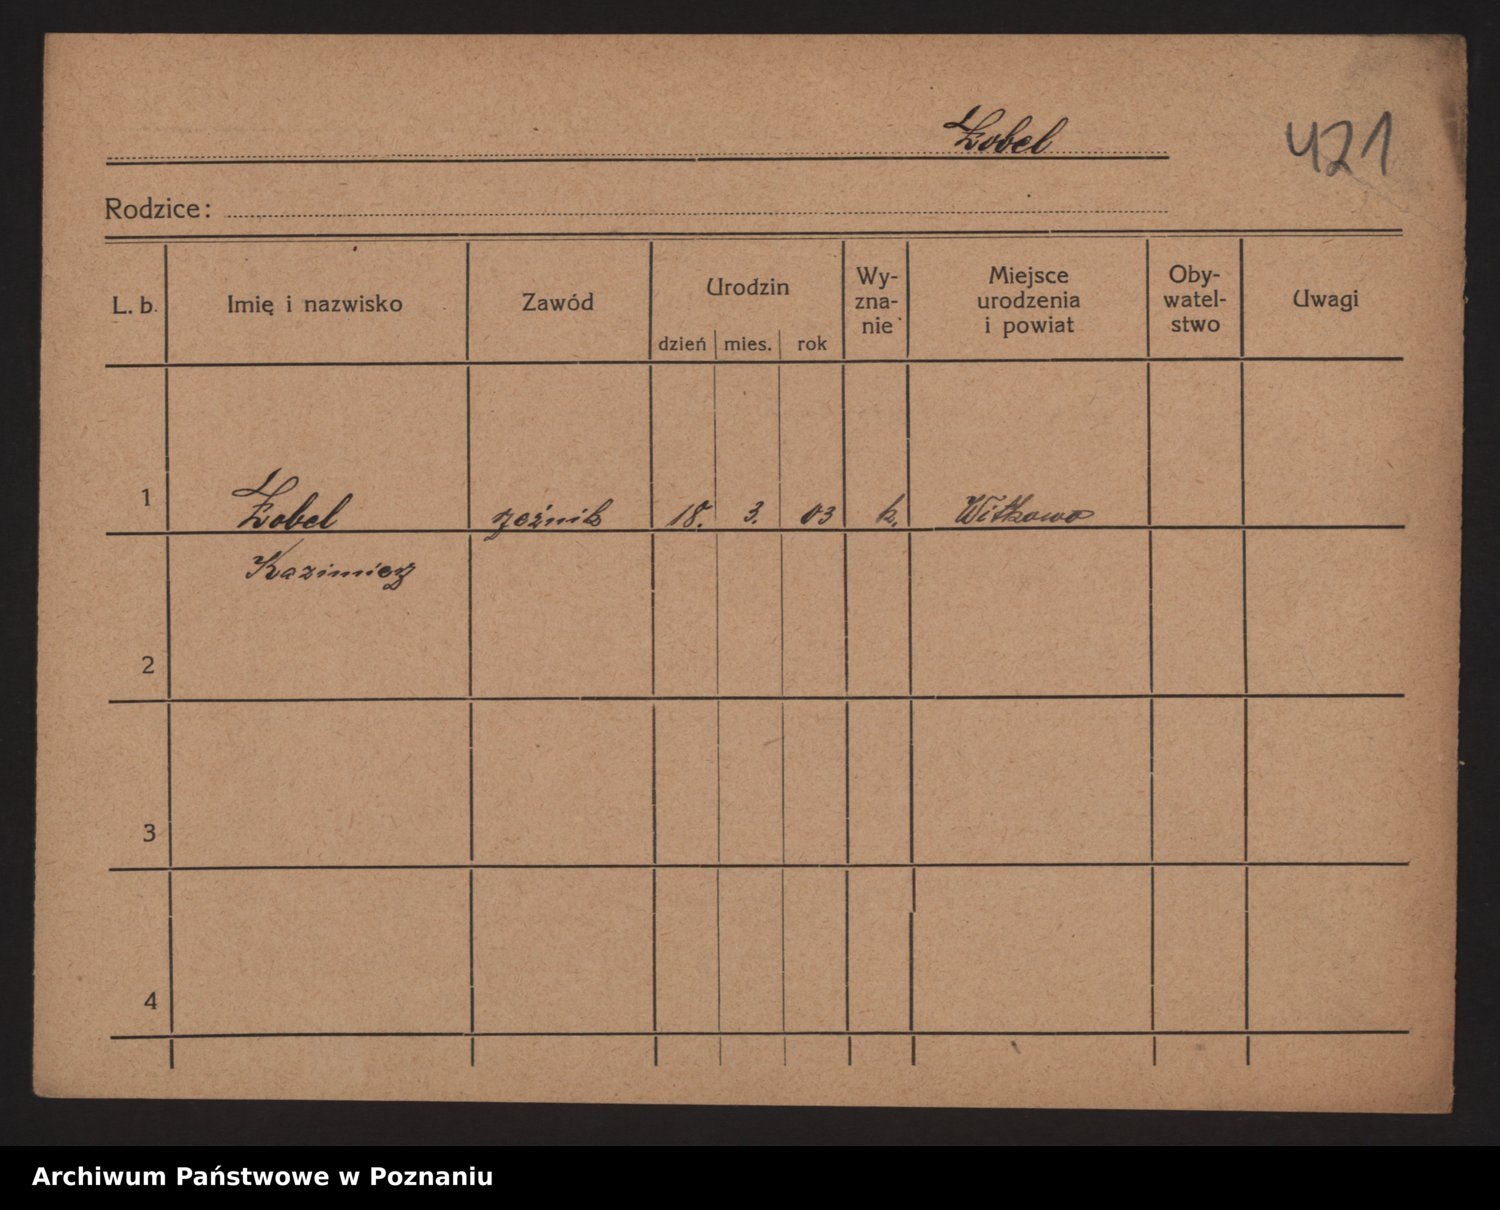 Żobel
421
Rodzice:
L. b. Imię i nazwisko Zawód Urodzin dzień mies. rok Wy-zna-nie Miejsce urodzenia i powiat Oby-watel-stwo Uwagi
1 Żobel rzeźnik 18. 3. 03 k. Witkowo
Kazimierz
2
3
4
Archiwum Państwowe w Poznaniu